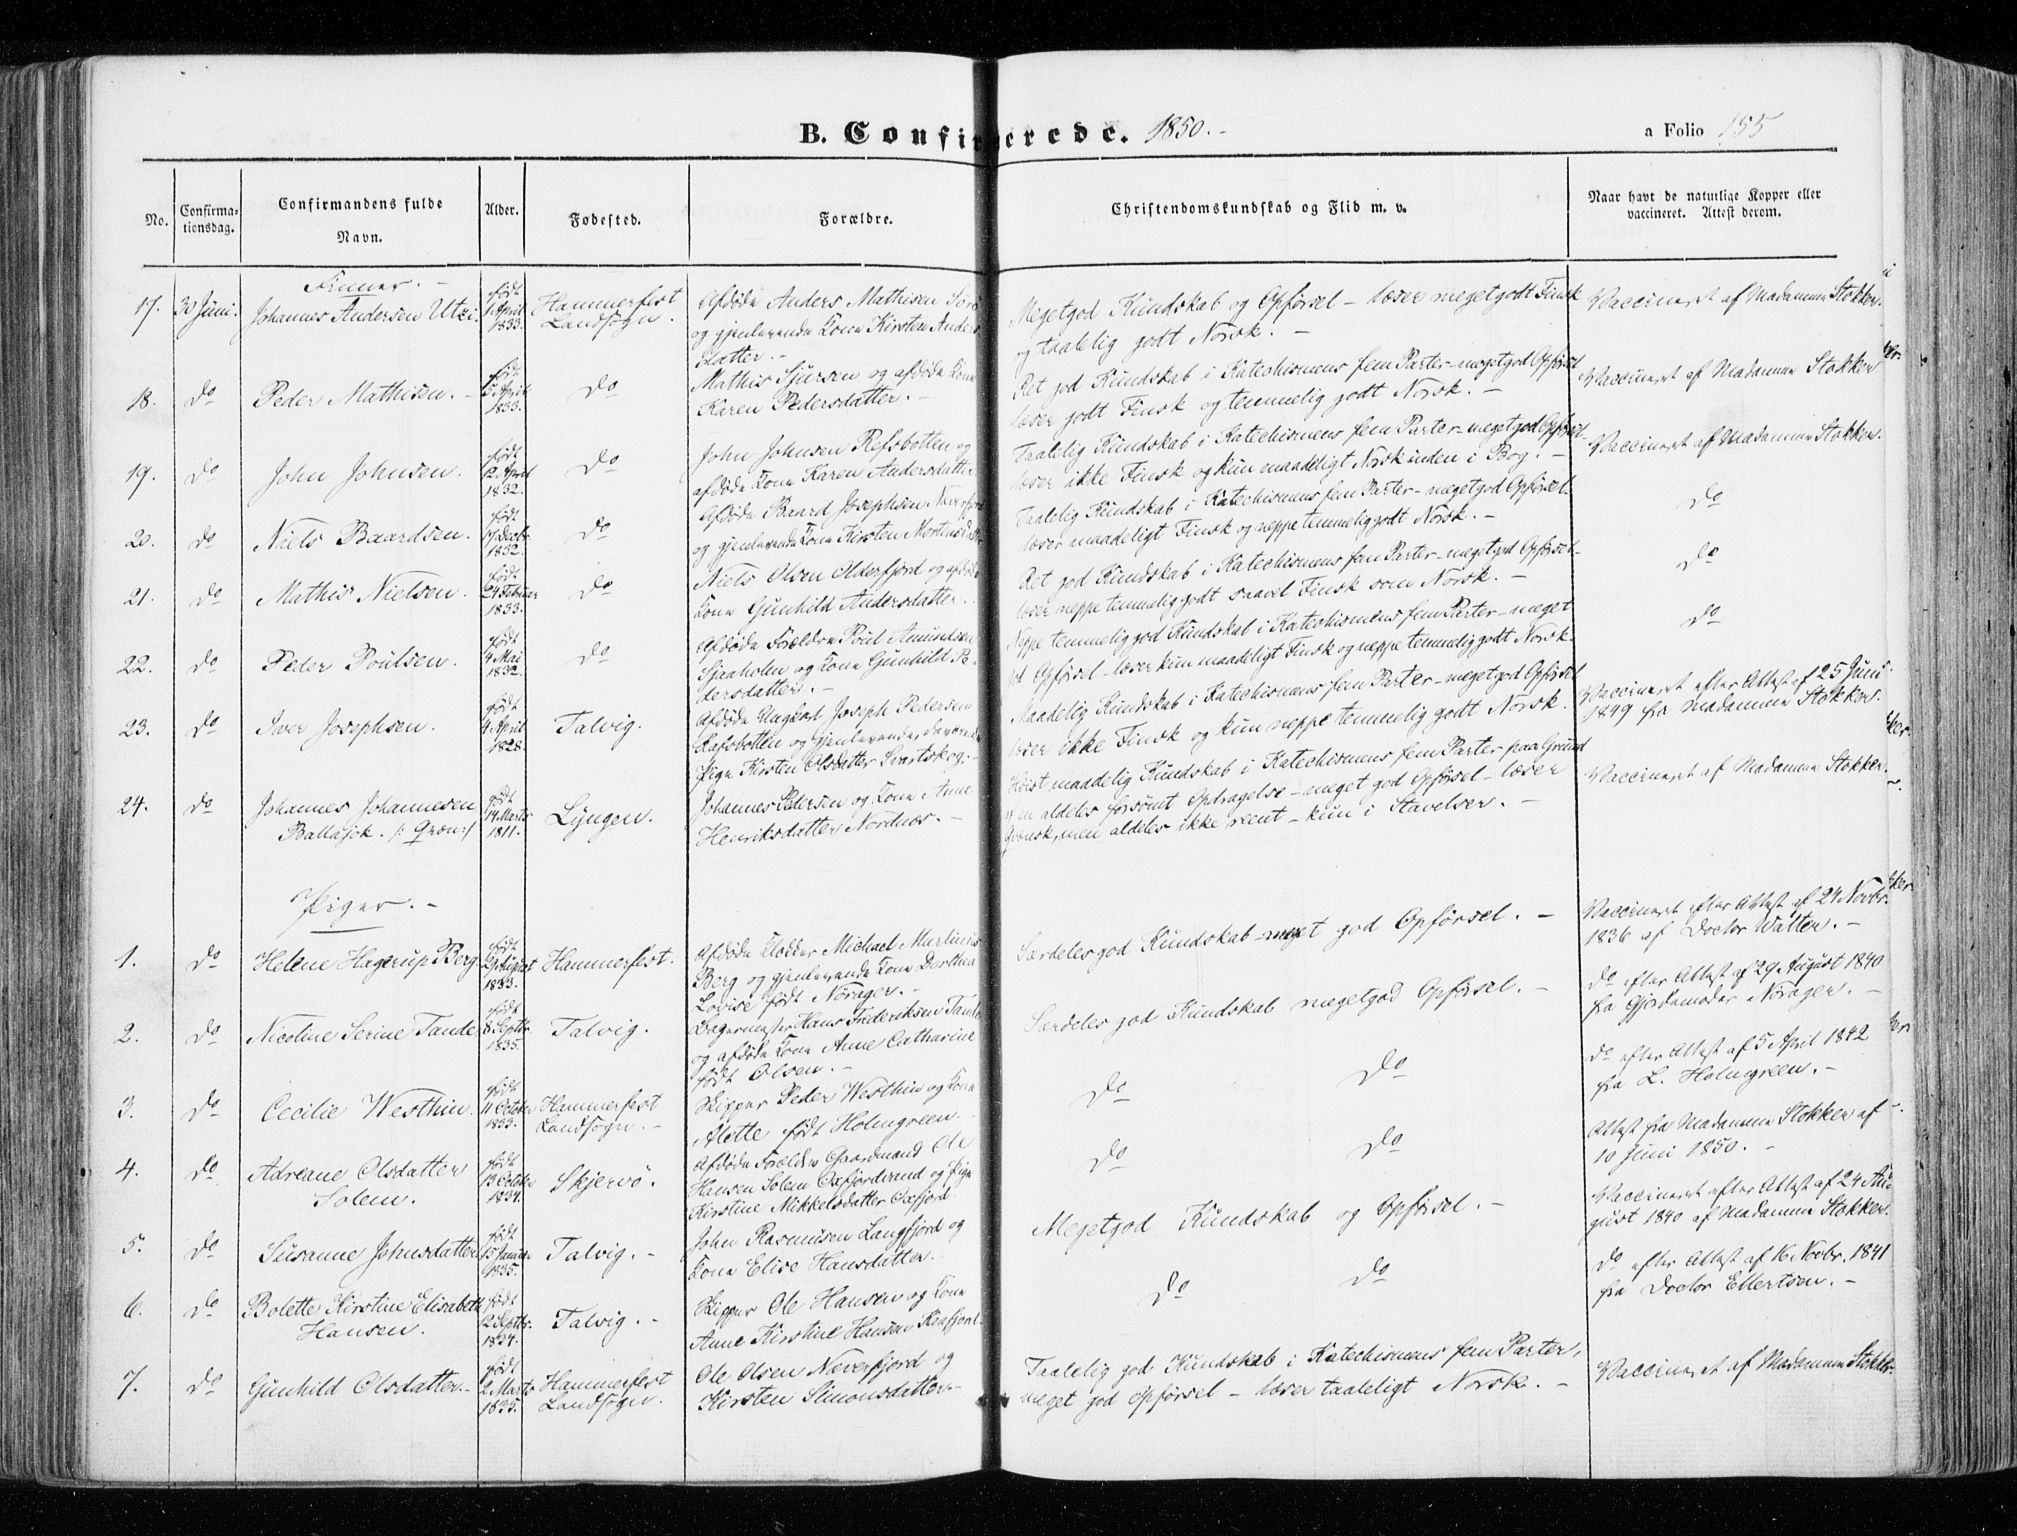 B. Confirmerede. 1850.-
a Folio 155
No.
Confirma-
tionsdag.
Confirmandens fulde
Navn.
Alder.
Fødested.
Forældre.
Christendomskundskab og Flid m. v.
Naar havt de naturlige Kopper eller
vaccineret. Attest derom.
Finner. -
17. 30 Juni. Johannes Andersen Utzi.
født
1 April
1833.
Hammerfest
Landsogn.
Afdøde Anders Mathisen
og gjenlevende Kone Kirsten Anders
datter. -
Megetgod Kundskab og Opførsel - læser megetgodt Finsk
og taalelig godt Norsk. -
Vaccineret af Madamme Stokker.
18. do Peder Mathisen. -
født
April
1833.
do
Mathis Sjursen og afdøde Kone
Karen Pedersdatter. -
Ret god Kundskab i Katechismens fem Parter - megetgod Opførsel
læser godt Finsk og temmelig godt Norsk. -
Vaccineret af Madamme Stokker
19. do John Johnsen.
født
12 April
1832.
do
John Johnsen Refsbotten og
afdøde Kone Karen Andersdatter
Taalelig Kundskab i Katechismens fem Parter - megetgod Opførsel -
læser ikke Finsk og kun maadeligt Norsk inden i Bog. -
Vaccineret af Madamme Stokker.
20. do Niels Baardsen.
født
17 Decbr.
1832.
do
Afdøde Baard Josephsen Næverfjord
og gjenlevende Kone Kirsten Mortensdatter
Taalelig Kundskab i Katechismens fem Parter - megetgod Opførsel -
læser maadeligt Finsk og neppe temmelig godt Norsk. -
do
21. do Mathis Nielsen.
født
24 Februar
1833.
do
Niels Olsen Olderfjord og afdøde
Kone Gunhild Andersdatter.
Ret god Kundskab i Katechismens fem Parter - megetgod Opførsel -
læser neppe temmelig godt saavel Finsk som Norsk. -
do
22. do Peder Poulsen.
født
4 Mai
1832.
do
Afdøde Forældre Poul Amundsen
Sjaaholm og Kone Gunhild Pe-
dersdatter. -
Neppe temmelig god Kundskab i Katechismens fem Parter - meget
god Opførsel - læser kun maadeligt Finsk og neppe temmelig godt Norsk.
do
23. do Iver Josephsen.
født
4 April
1828.
Talvig.
Afdøde Ungkarl Joseph Pedersen
Rafsbotten og gjenlevende, daværende
Pige Kirsten Olsdatter Svartskog. -
Maadelig Kundskab i Katechismens fem Parter - megetgod Opførsel
læser ikke Finsk og kun neppe temmelig godt Norsk.
Vaccineret efter Attest af 25 Juni
1849 fra Madamme Stokker.
24. do Johannes Johannesen
Ballasjok. /: Qvæn:/
født
14 Marts
1811.
Lyngen.
Johannes Pedersen og Kone Anne
Henriksdatter Nordnæs. -
Høist maadelig Kundskab i Katechismens fem Parter paa Grund
af en aldeles forsømt Opdragelse - meget god Opførsel - læser
Qvænsk, men aldeles ikke reent - kun i Stavelser. -
Vaccineret af Madamme Stokker.
Piger. -
1. do Helene Hagerup Berg
født
August
1833.
Hammerfest.
Afdøde Klokker Michael Martinus
Berg og gjenlevende Kone Dorthea
Lovise født Norager. -
Særdeles god Kundskab - meget god Opførsel. -
Vaccineret efter Attest af 24 Novbr.
1836 af Doctor Walter. -
2. do Nicoline Serine Tande
født
8 Septbr.
1835.
Talvig.
Bagermester Hans Frederiksen Tande
og afdøde Kone Anne Catharine
født Olsen. -
Særdeles god Kundskab megetgod Opførsel. -
do efter Attest af 29 August 1840
fra Gjordemoder Norager. -
3. do Cecilie Westhin.
født
11 October
1833.
Hammerfest
Landsogn. -
Skipper Peder Westhin og Kone
Alette født Holmgreen.
do do
do efter Attest af 5 April 1842
fra L. Holmgreen. -
4. do Adreane Olsdatter
Solem.
født
13 October
1834.
Skjervø.
Afdøde Forældre Gaardmand Ole
Hansen Solem Oxfjordvand og Pige
Kirstine Mikkelsdatter Oxfjord.
do do
Attest fra Madamme Stokker af
10 Juni 1850. -
5. do Susanne Johnsdatter
født
15 Januar
1835.
Talvig. -
John Rasmusen Langfjord og
Kone Elise Hansdatter. -
Megetgod Kundskab og Opførsel. -
Vaccineret efter Attest af 24 Au-
gust 1840 af Madamme Stokker.
6. do Bolette Kirstine Elisabeth
Hansen.
født
12 Septbr.
1834.
Talvig. -
Skipper Ole Hansen og Kone
Anne Kirstine Hansen Kaafjord.
do do
do efter Attest af 16 Novbr. 1841
fra Doctor Ellertsen. -
7. do Gunhild Olsdatter. -
født
2 Marts
1835.
Hammerfest
Landsogn.
Ole Olsen Næverfjord og
Kirsten Simonsdatter. -
Taalelig god Kundskab i Katechismens fem Parter,
meget god Opførsel - læser taaleligt Norsk. -
Vaccineret af Madamme Stokker.